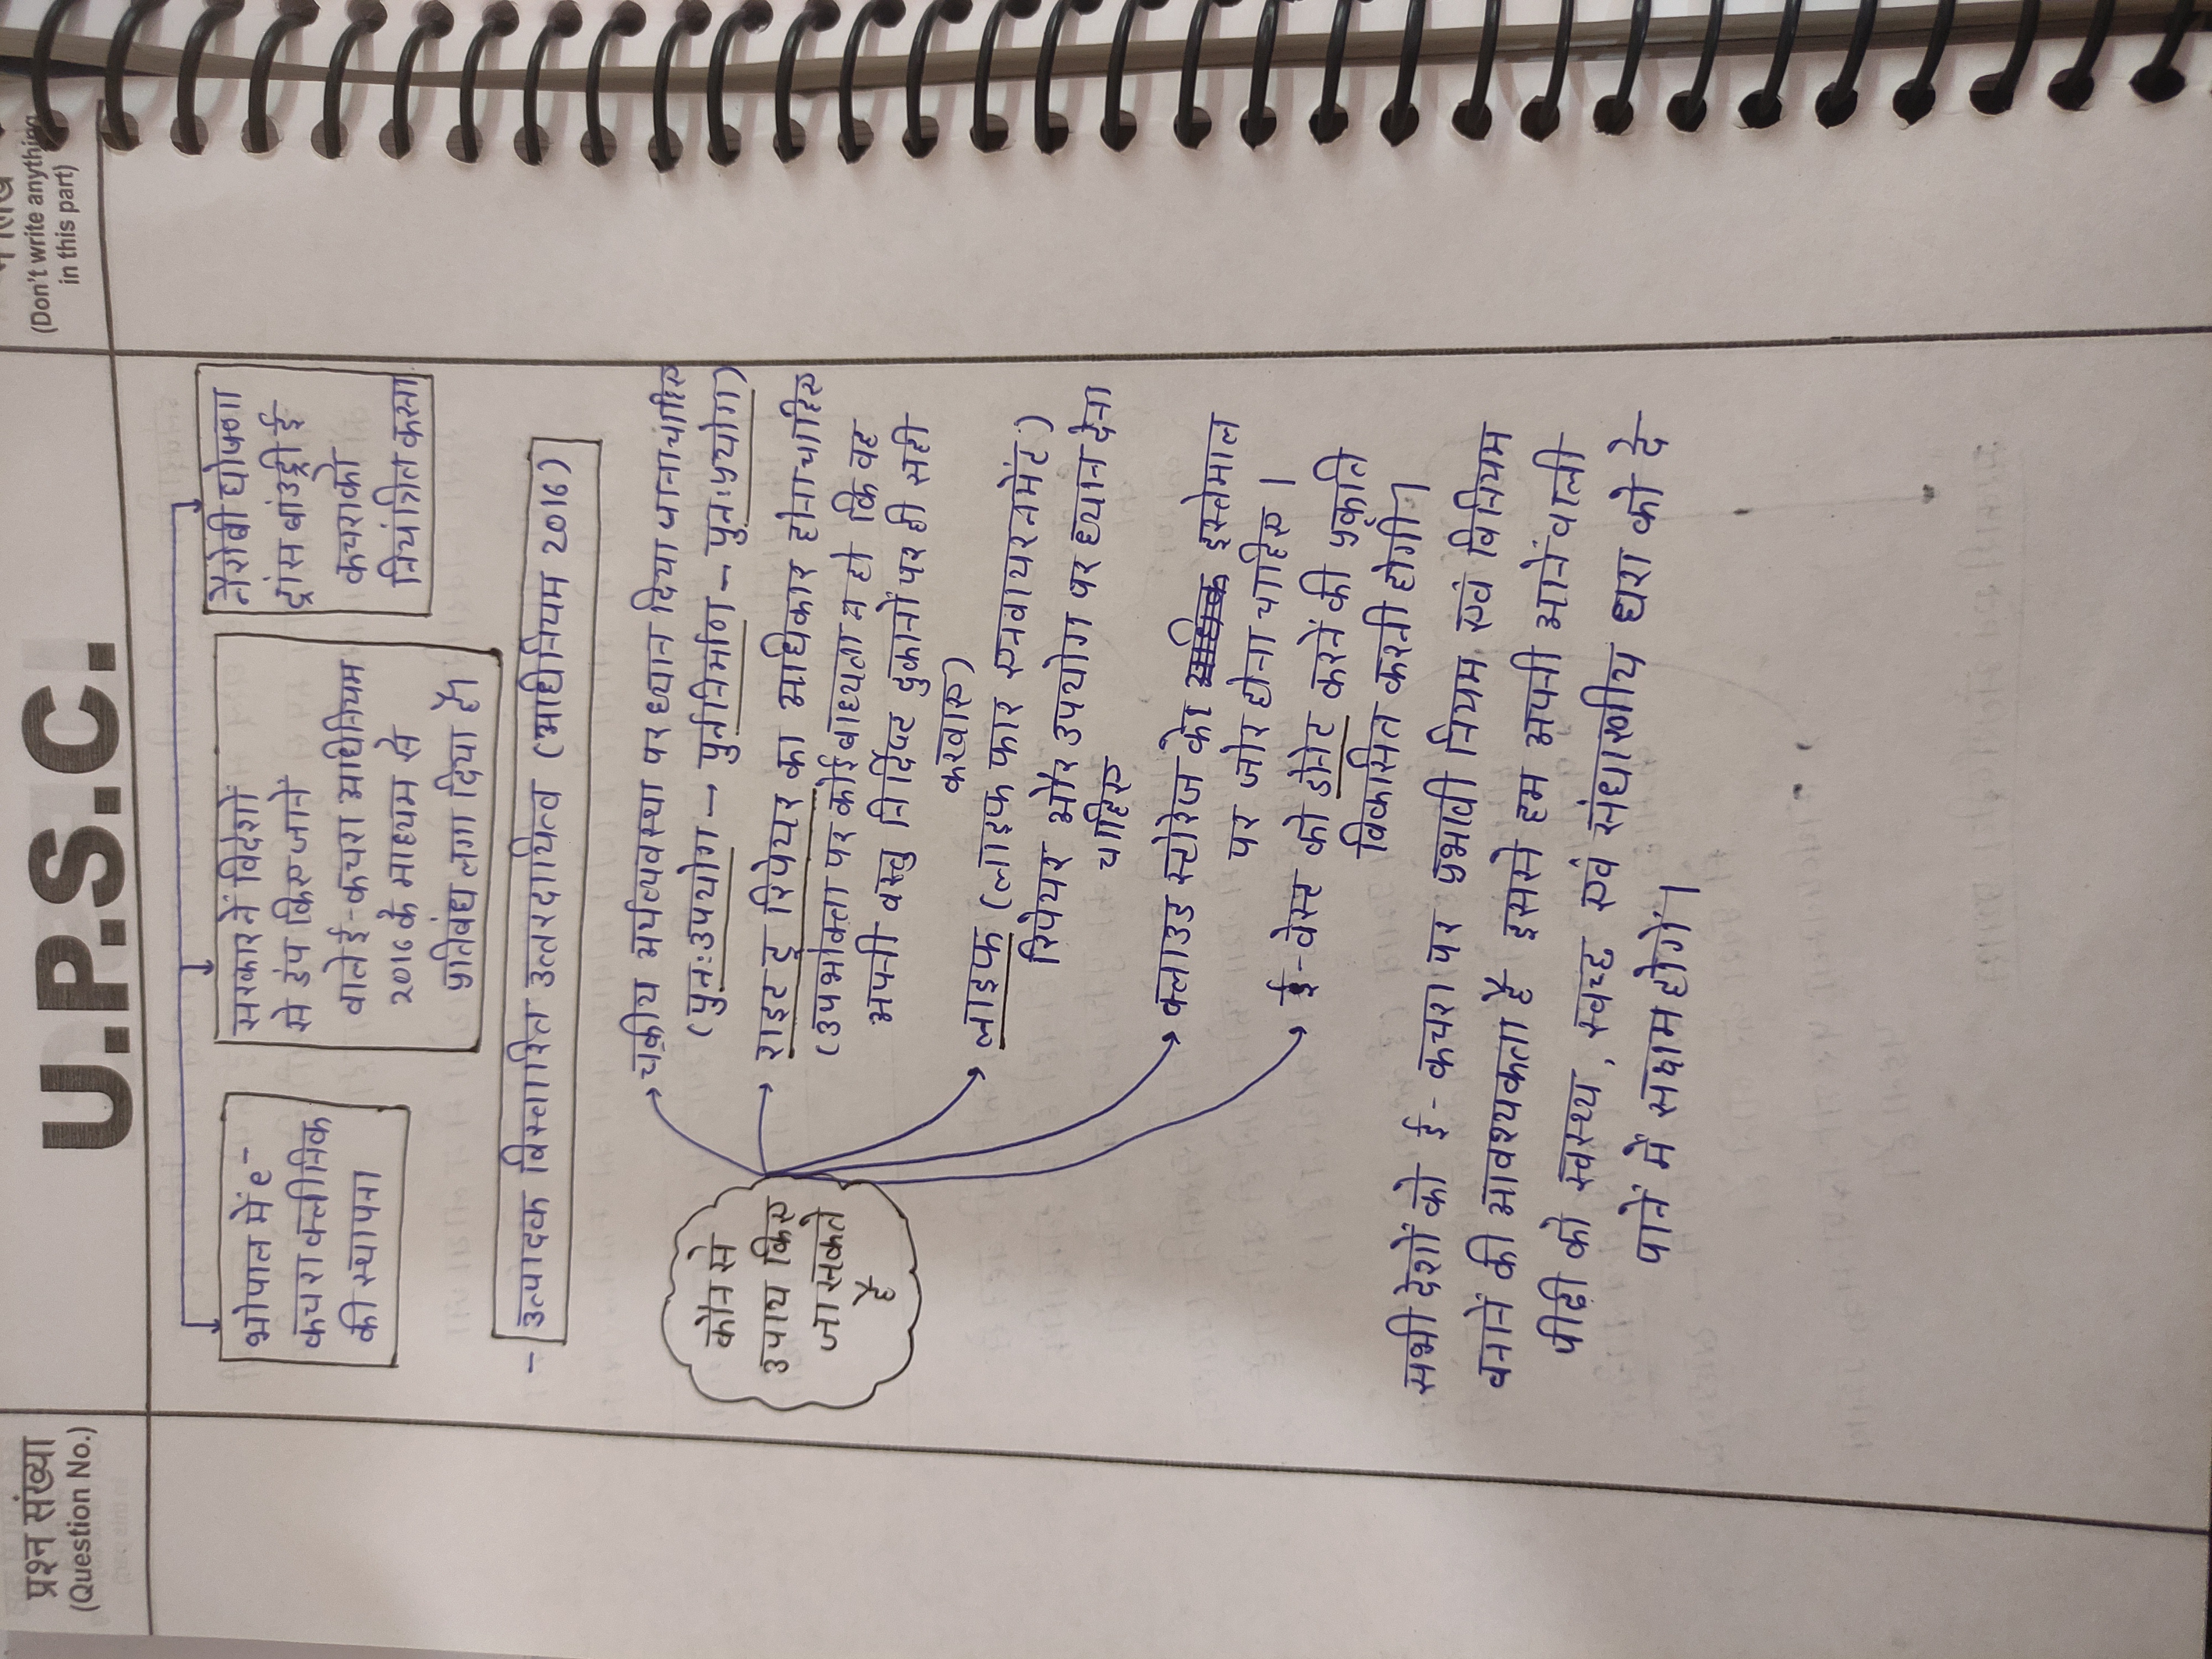 प्रश्न संख्या
(Question No.)
U.P.S.C.
(Don't write anything
in this part)
भोपाल में e-
कचरा क्लीनिक
की स्थापना
सरकार नें विदेशों
से डंप किए जाने
वाले ई-कचरा अधिनियम
2016 के माध्यम से
प्रतिबंध लगा दिया है।
नैरोबी घोषणा
ट्रांस बांउड्री ई
कचरा को
नियंत्रित करना
- उत्पादक विस्तारित उत्तरदायित्व (अधिनियम 2016)
कौन से
उपाय किए
जा सकते
है
चक्रीय अर्थव्यवस्था पर ध्यान दिया जाना चाहिए
(पुनःउपयोग - पुर्ननिर्माण - पुनःप्रयोग)
राइट टू रिपेयर का अधिकार होना चाहिए
(उपभोक्ता पर कोई बाध्यता न हो कि वह
अपनी वस्तु निर्दिष्ट दुकानों पर ही सही
करवाए)
लाइफ (लाइफ फार एनवायरनमेंट)
रिपेयर और उपयोग पर ध्यान देना
चाहिए
क्लाउड स्टोरेज के इस्तेमाल
पर जोर होना चाहिए।
ई-वेस्ट को डोनेट करनें की प्रकृति
विकसित करनी होगी।
सभी देशों को ई-कचरा पर प्रभावी नियम एवं विनियम
बनानें की आवश्यकता है इससे हम अपनी आनें वाली
पीढ़ी को स्वस्थ्य, स्वच्छ एवं संधारणीय धरा को दे
पानें में सक्षम होगें।